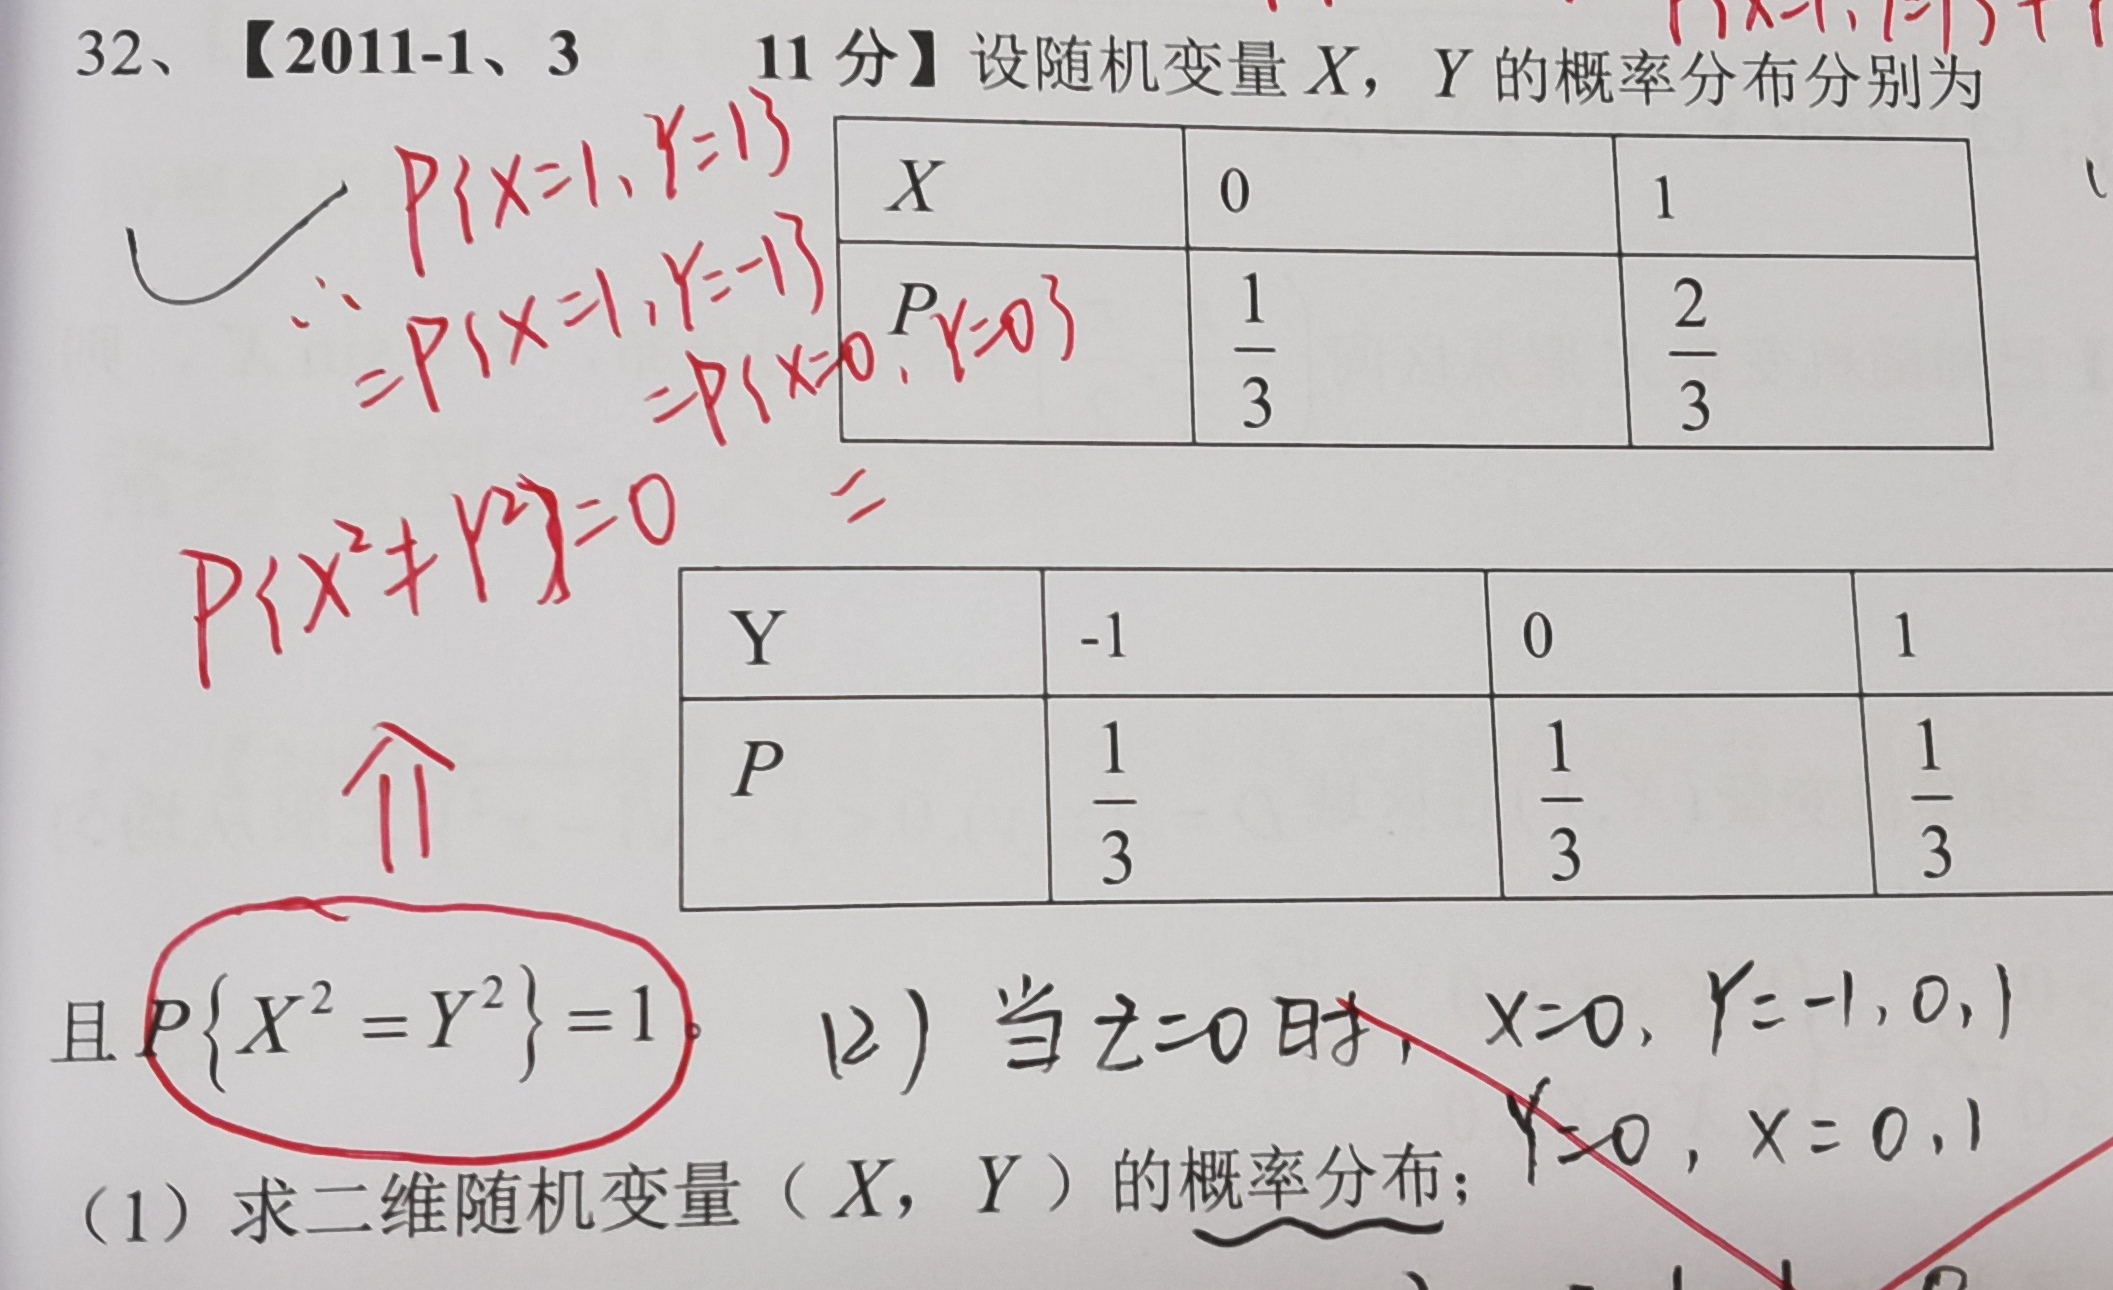 P{X=1、Y=1}+P
32、【2011-1、3 11 分】设随机变量 X，Y 的概率分布分别为
P{X=1、Y=1}
X 0 1
∴ =P{X=1、Y=-1}
=P{X=0、Y=0}
P 1/3 2/3
P{X²≠Y²}=0 =
Y -1 0 1
P 1/3 1/3 1/3
⇑
且 P{X²=Y²}=1。
(2) 当Z=0时, X=0, Y=-1, 0, 1
Y=0, X=0, 1
（1）求二维随机变量（X，Y）的概率分布；